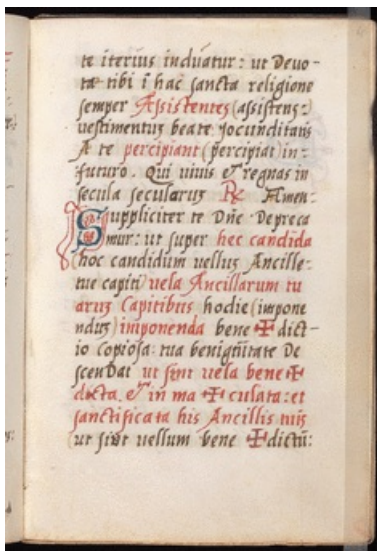 te iterius induatur: ut Devo-
ta tibi ī hac sancta religione
semper Assistentes (assistens:)
vestimentuz beate Jocunditatis
A te percipiant (percipiat) in-
futuro. Qui vivis & regnas in
secula secularuz ℟ Amen-
Suppliciter te Dn̄e Depreca
mur: ut super hec candida
hoc candidum vellus Ancille:
tue capiti vela Ancillarum tu
aruz Capitibus hodie (impone
nduz) imponenda bene ✠ dict-
io copiosa: tua benignitate De
scendat ut sint vela bene ✠
dicta. & in ma ✠ culata: et
sanctificata his Ancillis tuis
ut sint vellum bene ✠ dictū: